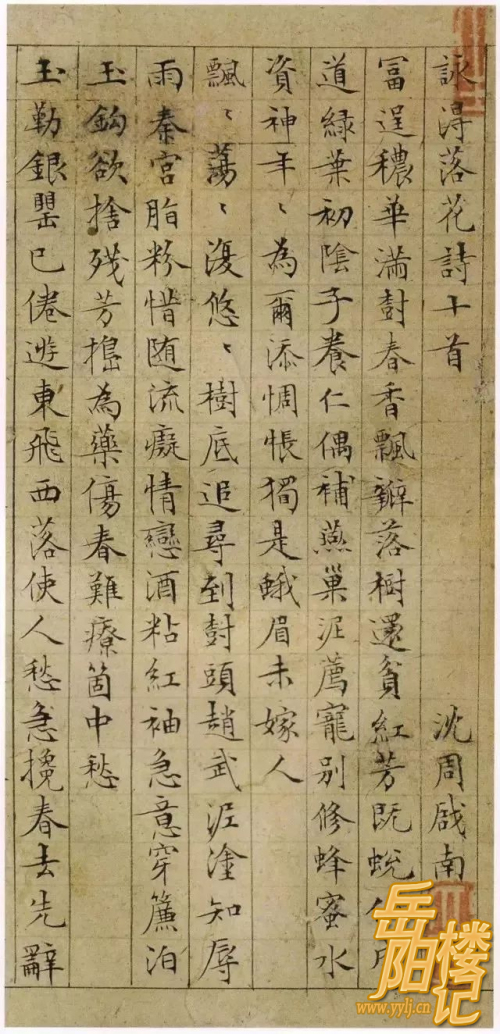 詠得落花詩十首 沈周啟南
富逞穠華滿樹春香飄瓣落樹還貧紅芳既蛻
道綠葉初陰子養仁偶補燕巢泥薦寵別修蜂蜜水
資神年〻為爾添惆悵獨是蛾眉未嫁人
飄〻蕩〻復悠〻樹底追尋到樹頭趙武泥塗知辱
雨秦宮脂粉惜隨流癡情戀酒粘紅袖急意穿簾泊
玉鈎欲捨殘芳搗為藥傷春難療箇中愁
玉勒銀罌已倦遊東飛西落使人愁急攙春去先辭
岳阳楼记
www.yylj.cn